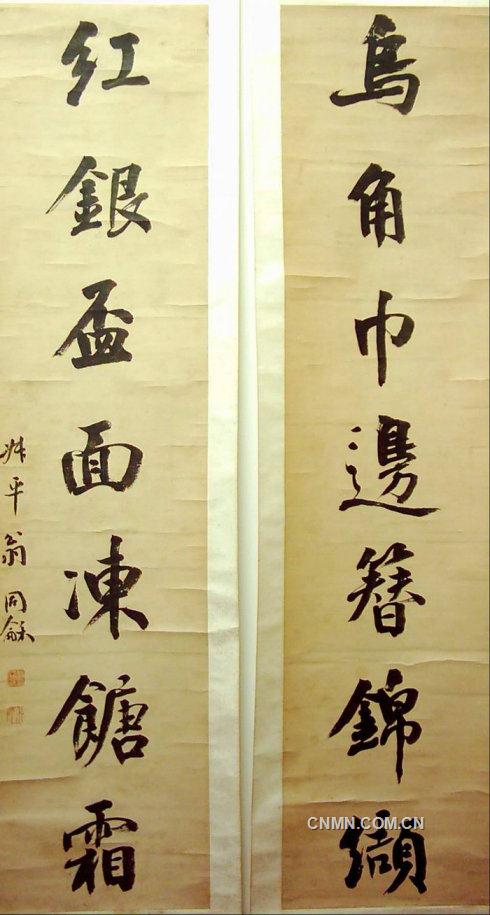 烏角巾邊簪錦纈
紅銀盃面凍餹霜
叔平翁同龢
CNMN.COM.CN